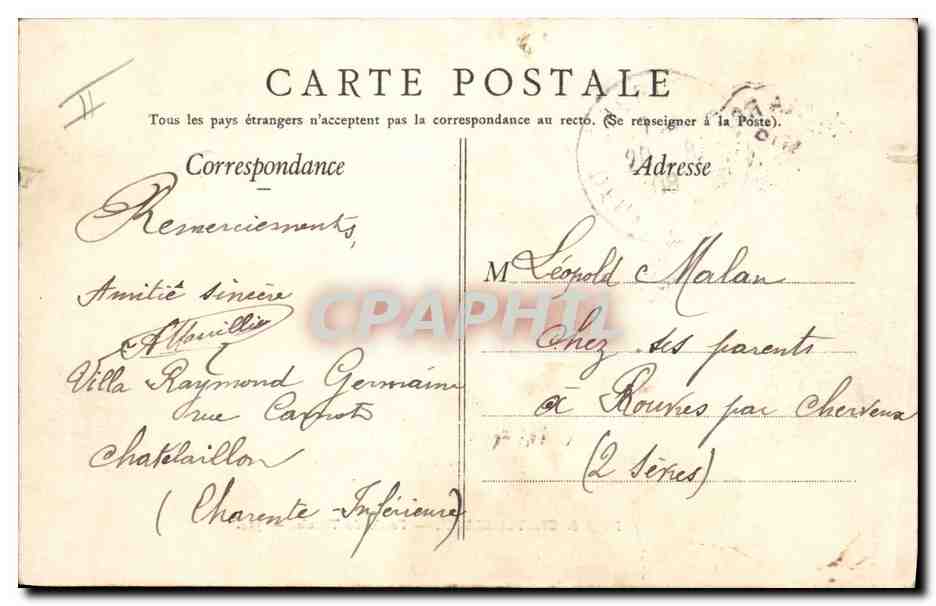 II
CARTE POSTALE
Tous les pays étrangers n'acceptent pas la correspondance au recto. (Se renseigner à la Poste).
Correspondance
Remerciements,
Amitié sincère
Villa Raymond Germaine
rue Carnot
Chatelaillon
(Charente-Inférieure)
Adresse
M Léopold Malan
Chez ses parents
à Rouvres par Cherveux
(2 Sèvres)
CPAPHIL